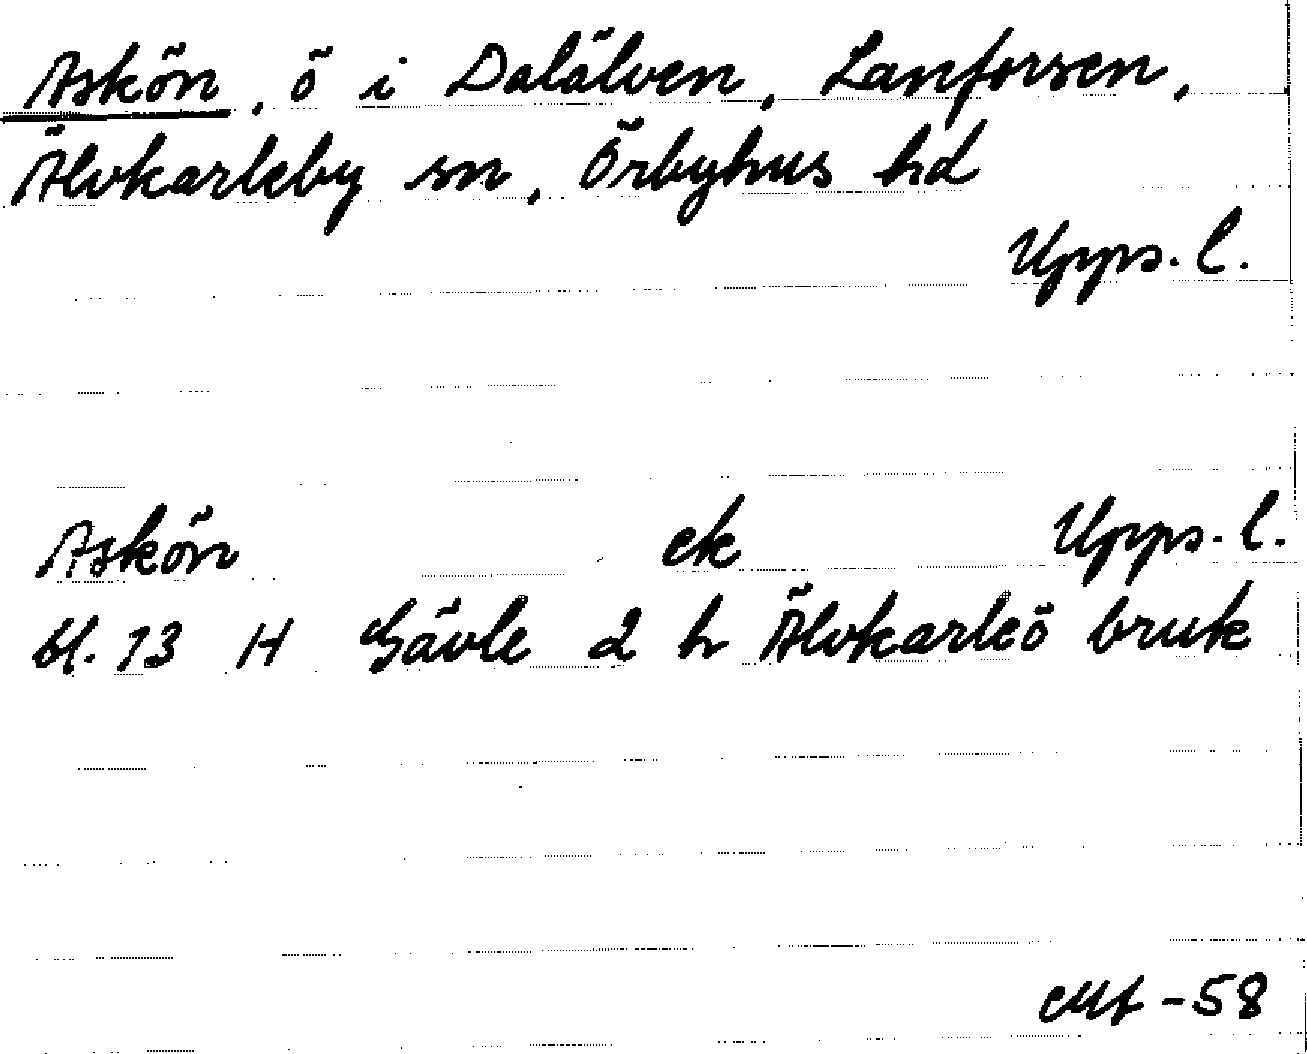 Askön, ö i Dalälven, Lanforsen,
Älvkarleby sn, Örbyhus hd
Upps. l.
Askön ek Upps. l.
bl. 13 H Gävle d h Älvkarleö bruk
-58